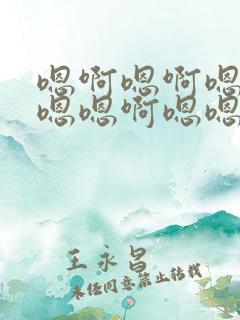 嗯啊嗯啊嗯
嗯嗯啊嗯嗯
王永昌
未经同意禁止转载